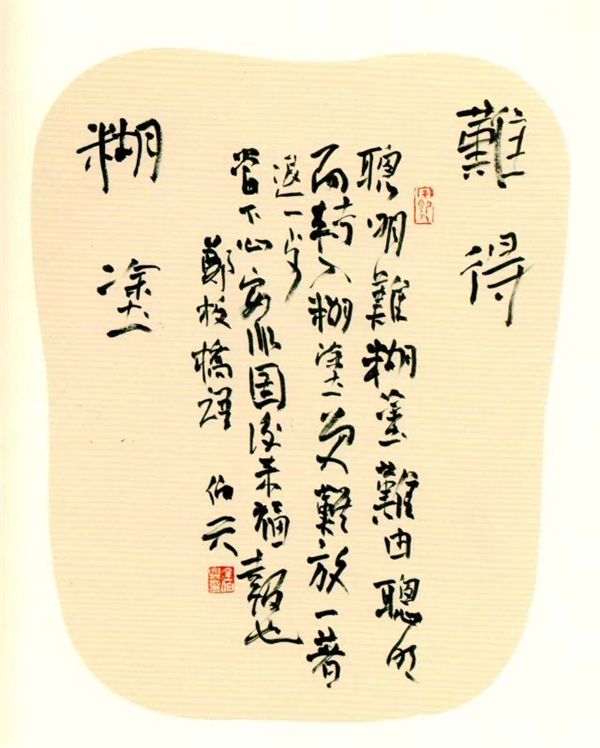 難得
聰明難糊塗難由聰明
而轉入糊塗更難放一著
退一步
當下心安非圖後來福報也
鄭板橋語
糊塗